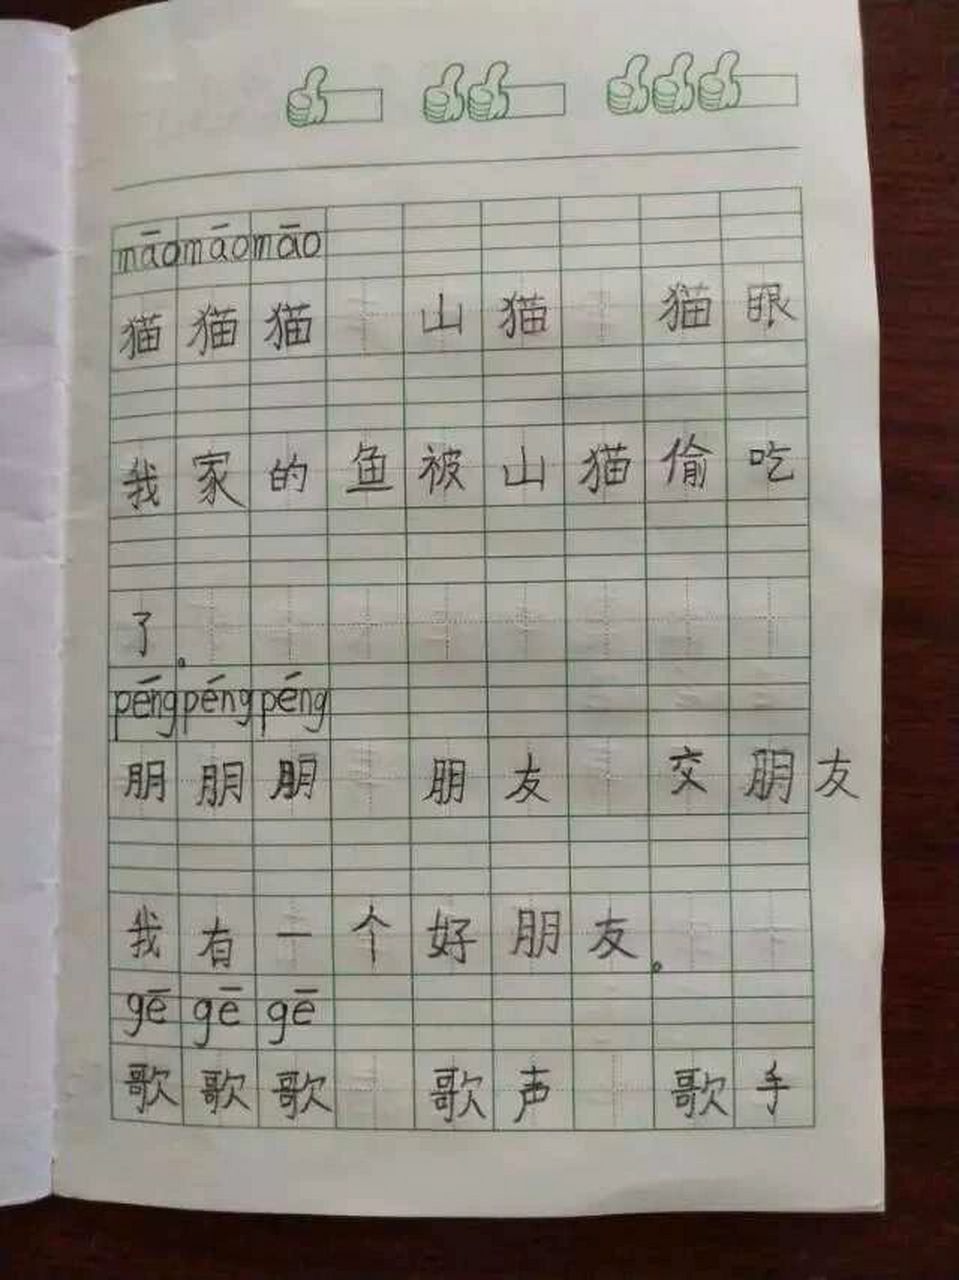 māo máo māo
猫 猫 猫 山 猫 猫 眼
我 家 的 鱼 被 山 猫 偷 吃
了 。
péng péng péng
朋 朋 朋 朋 友 交 朋 友
我 有 一 个 好 朋 友 。
gē gē gē
歌 歌 歌 歌 声 歌 手